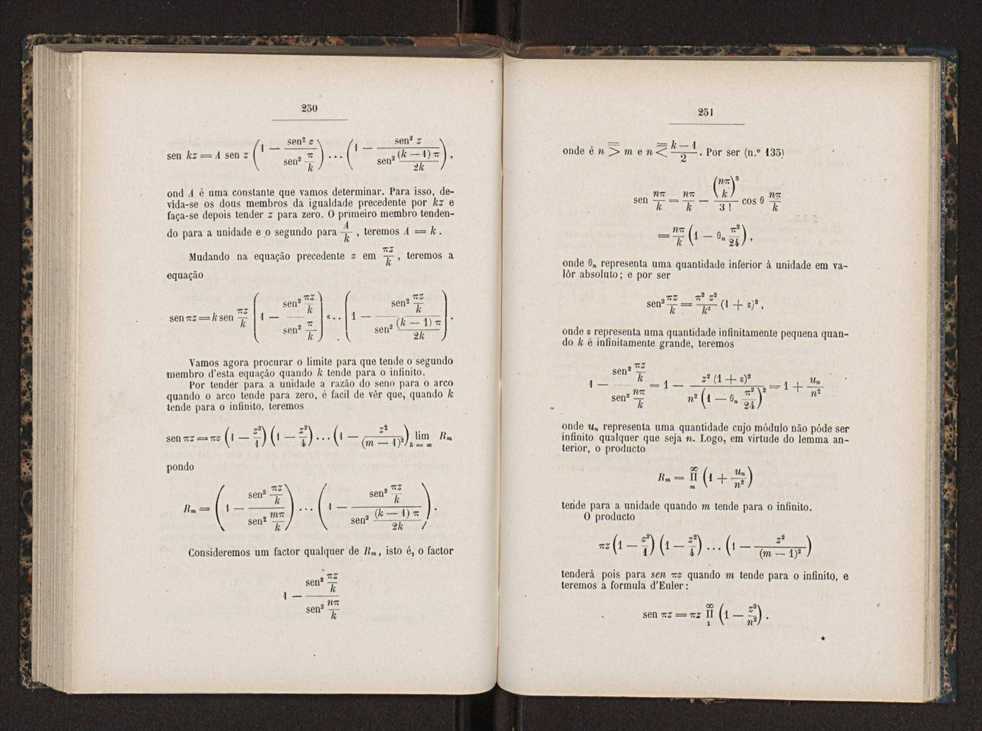 250
sen kz = A sen z (1 − sen² z / sen² π/k) ... (1 − sen² z / sen² (k − 1) π/2k),
ond A é uma constante que vamos determinar. Para isso, de-
vida-se os dous membros da igualdade precedente por kz e
faça-se depois tender z para zero. O primeiro membro tenden-
do para a unidade e o segundo para A/k , teremos A = k .
Mudando na equação precedente z em πz/k , teremos a
equação
sen πz = k sen πz/k (1 − sen² πz/k / sen² π/k) ... (1 − sen² πz/k / sen² (k − 1) π/2k).
Vamos agora procurar o limite para que tende o segundo
membro d'esta equação quando k tende para o infinito.
Por tender para a unidade a razão do seno para o arco
quando o arco tende para zero, é facil de vêr que, quando k
tende para o infinito, teremos
sen πz = πz (1 − z²/1) (1 − z²/4) ... (1 − z²/(m − 1)²) lim k = ∞ Rm
pondo
Rm = (1 − sen² πz/k / sen² mπ/k) ... (1 − sen² πz/k / sen² (k − 1) π/2k).
Consideremos um factor qualquer de Rm, isto é, o factor
1 − sen² πz/k / sen² nπ/k
251
onde é n ⋝ m e n ⋜ k − 1/2. Por ser (n.º 135)
sen nπ/k = nπ/k − (nπ/k)³/3 ! cos θ nπ/k
= nπ/k (1 − θn π²/24),
onde θn representa uma quantidade inferior à unidade em va-
lôr absoluto; e por ser
sen² πz/k = π² z²/k² (1 + ε)²,
onde ε representa uma quantidade infinitamente pequena quan-
do k é infinitamente grande, teremos
1 − sen² πz/k / sen² nπ/k = 1 − z² (1 + ε)² / n² (1 − θn π²/24)² = 1 + un/n²
onde un representa uma quantidade cujo módulo não póde ser
infinito qualquer que seja n. Logo, em virtude do lemma an-
terior, o producto
Rm = ∞ Π m (1 + un/n²)
tende para a unidade quando m tende para o infinito.
O producto
πz (1 − z²/1) (1 − z²/4) ... (1 − z²/(m − 1)²)
tenderá pois para sen πz quando m tende para o infinito, e
teremos a formula d'Euler:
sen πz = πz ∞ Π 1 (1 − z²/n²).
*